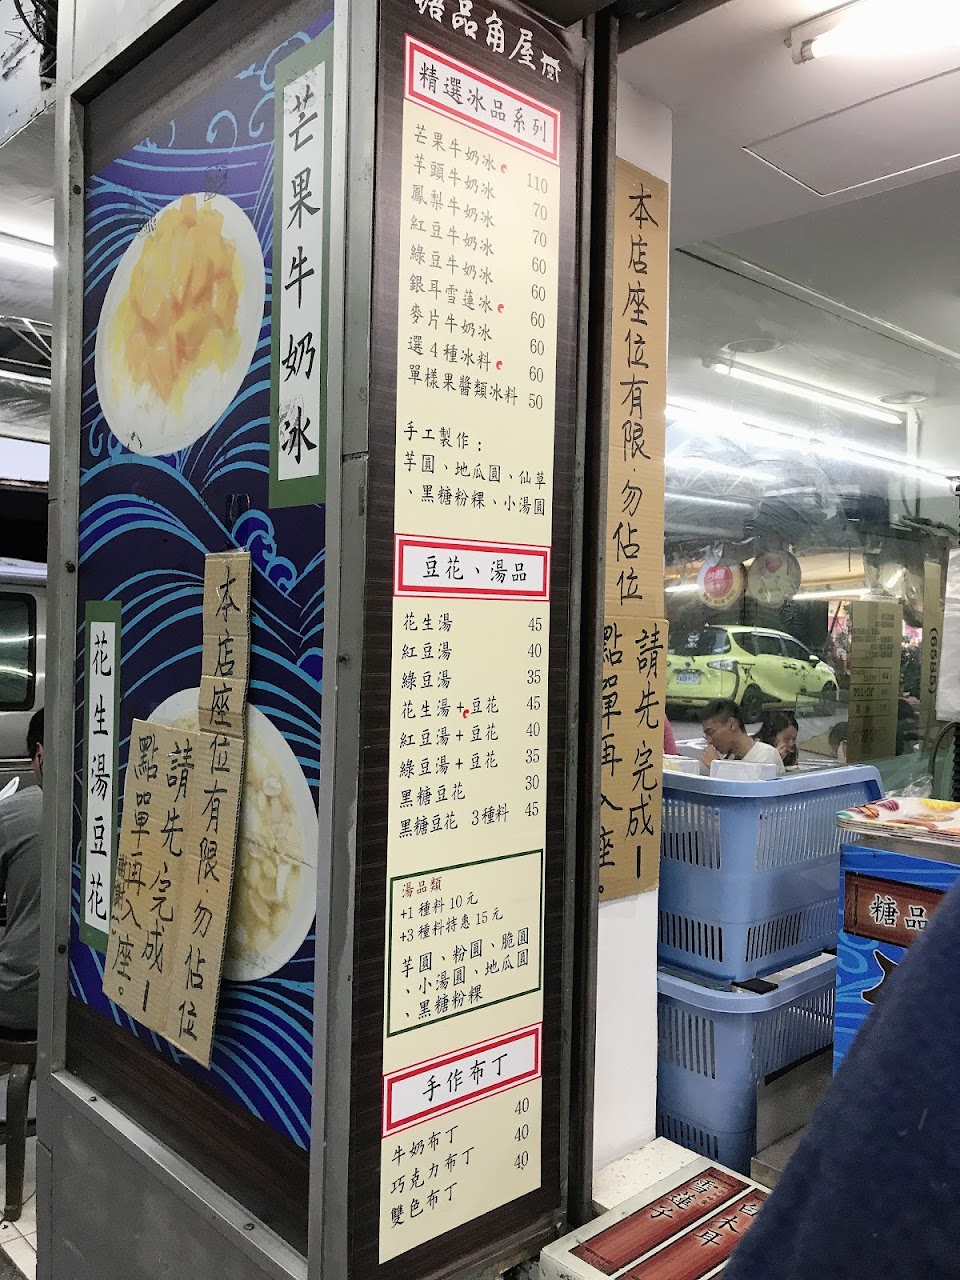 糖品角屋
精選冰品系列
芒果牛奶冰 110
芋頭牛奶冰 70
鳳梨牛奶冰 70
紅豆牛奶冰 60
綠豆牛奶冰 60
銀耳雪蓮冰 60
麥片牛奶冰 60
選4種冰料 60
單樣果醬類冰料 50
手工製作：
芋圓、地瓜圓、仙草
、黑糖粉粿、小湯圓
豆花、湯品
花生湯 45
紅豆湯 40
綠豆湯 35
花生湯+豆花 45
紅豆湯+豆花 40
綠豆湯+豆花 35
黑糖豆花 30
黑糖豆花 3種料 45
湯品類
+1種料10元
+3種料特惠15元
芋圓、粉圓、脆圓
、小湯圓、地瓜圓
、黑糖粉粿
手作布丁
牛奶布丁 40
巧克力布丁 40
雙色布丁 40
芒果牛奶冰
花生湯豆花
本店座位有限·勿佔位
請先完成
點單再入座。
謝謝
本店座位有限·勿佔位
請先完成
點單再入座。
糖品
白木耳
雪蓮子